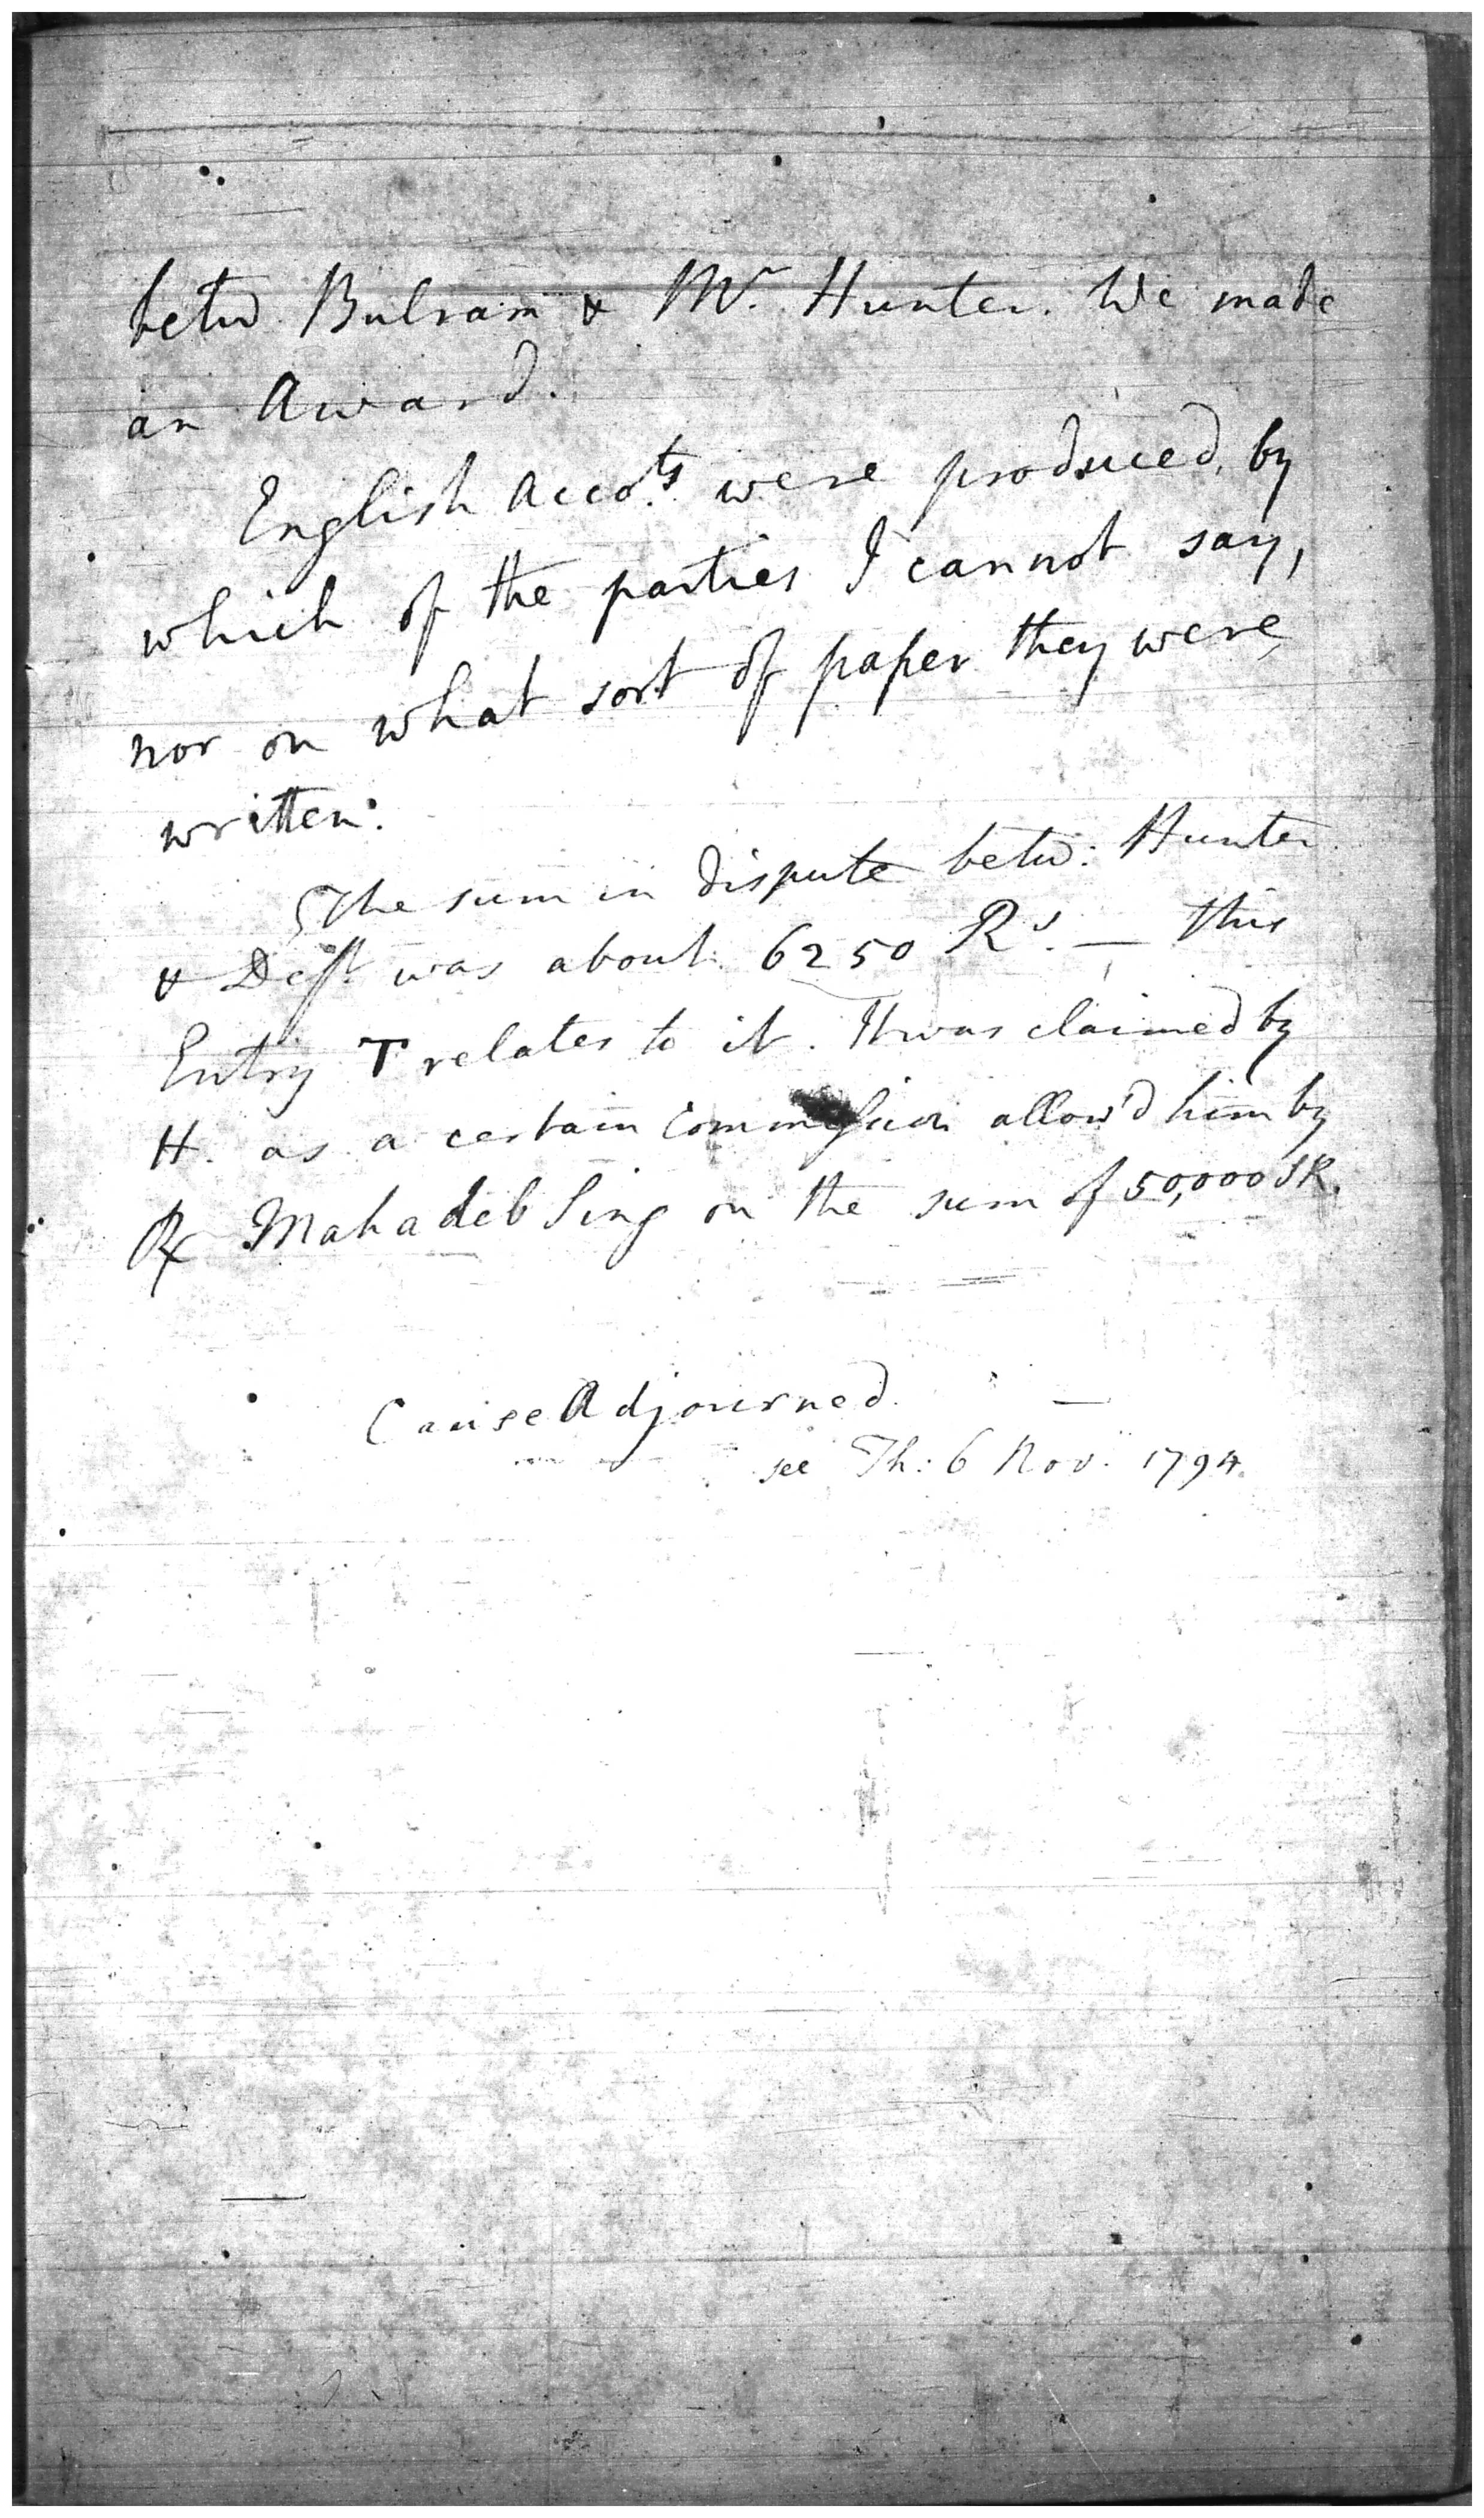 betw Bulram & Mr. Hunter. We made
an Award.
English Accots. were produced, by
which of the parties I cannot say,
nor on what sort of paper they were,
written.
The sum in dispute betw: Hunter
& Deft. was about 6250 Rs. — this
Entry T relates to it. It was claimed by
H. as a certain Commission allow'd him by
Mahadeb Sing on the sum of 50,000 SR.
Cause Adjourned. —
see Th: 6 Nov. 1794.